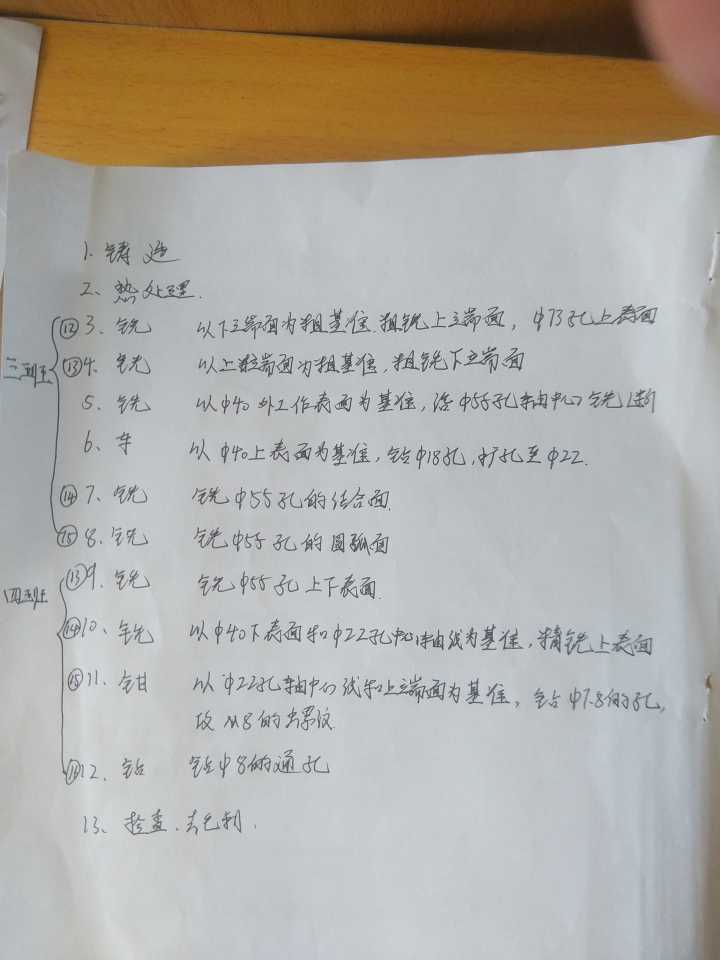 1. 铸造
2、热处理.
三班
⑫ 3、铣 以下端面为粗基准.粗铣上端面，φ73孔上表面
⑬ 4、铣 以上端面为粗基准，粗铣下端面
5、铣 以φ40外工作表面为基准，沿φ55孔轴中心铣断
6、车 以φ40上表面为基准，钻φ18孔，扩孔至φ22.
⑭ 7、铣 铣φ55孔的结合面.
⑮ 8、铣 铣φ55孔的圆弧面
四班
⑬ 9、铣 铣φ55孔上下表面.
⑭ 10、铣 以φ40下表面和φ22孔中心轴线为基准，精铣上表面
⑮ 11、钳 以φ22孔轴中心线和上端面为基准，钻φ7.8的孔，
攻M8的螺纹.
12、钻 钻φ8的通孔
13、检查.去毛刺.